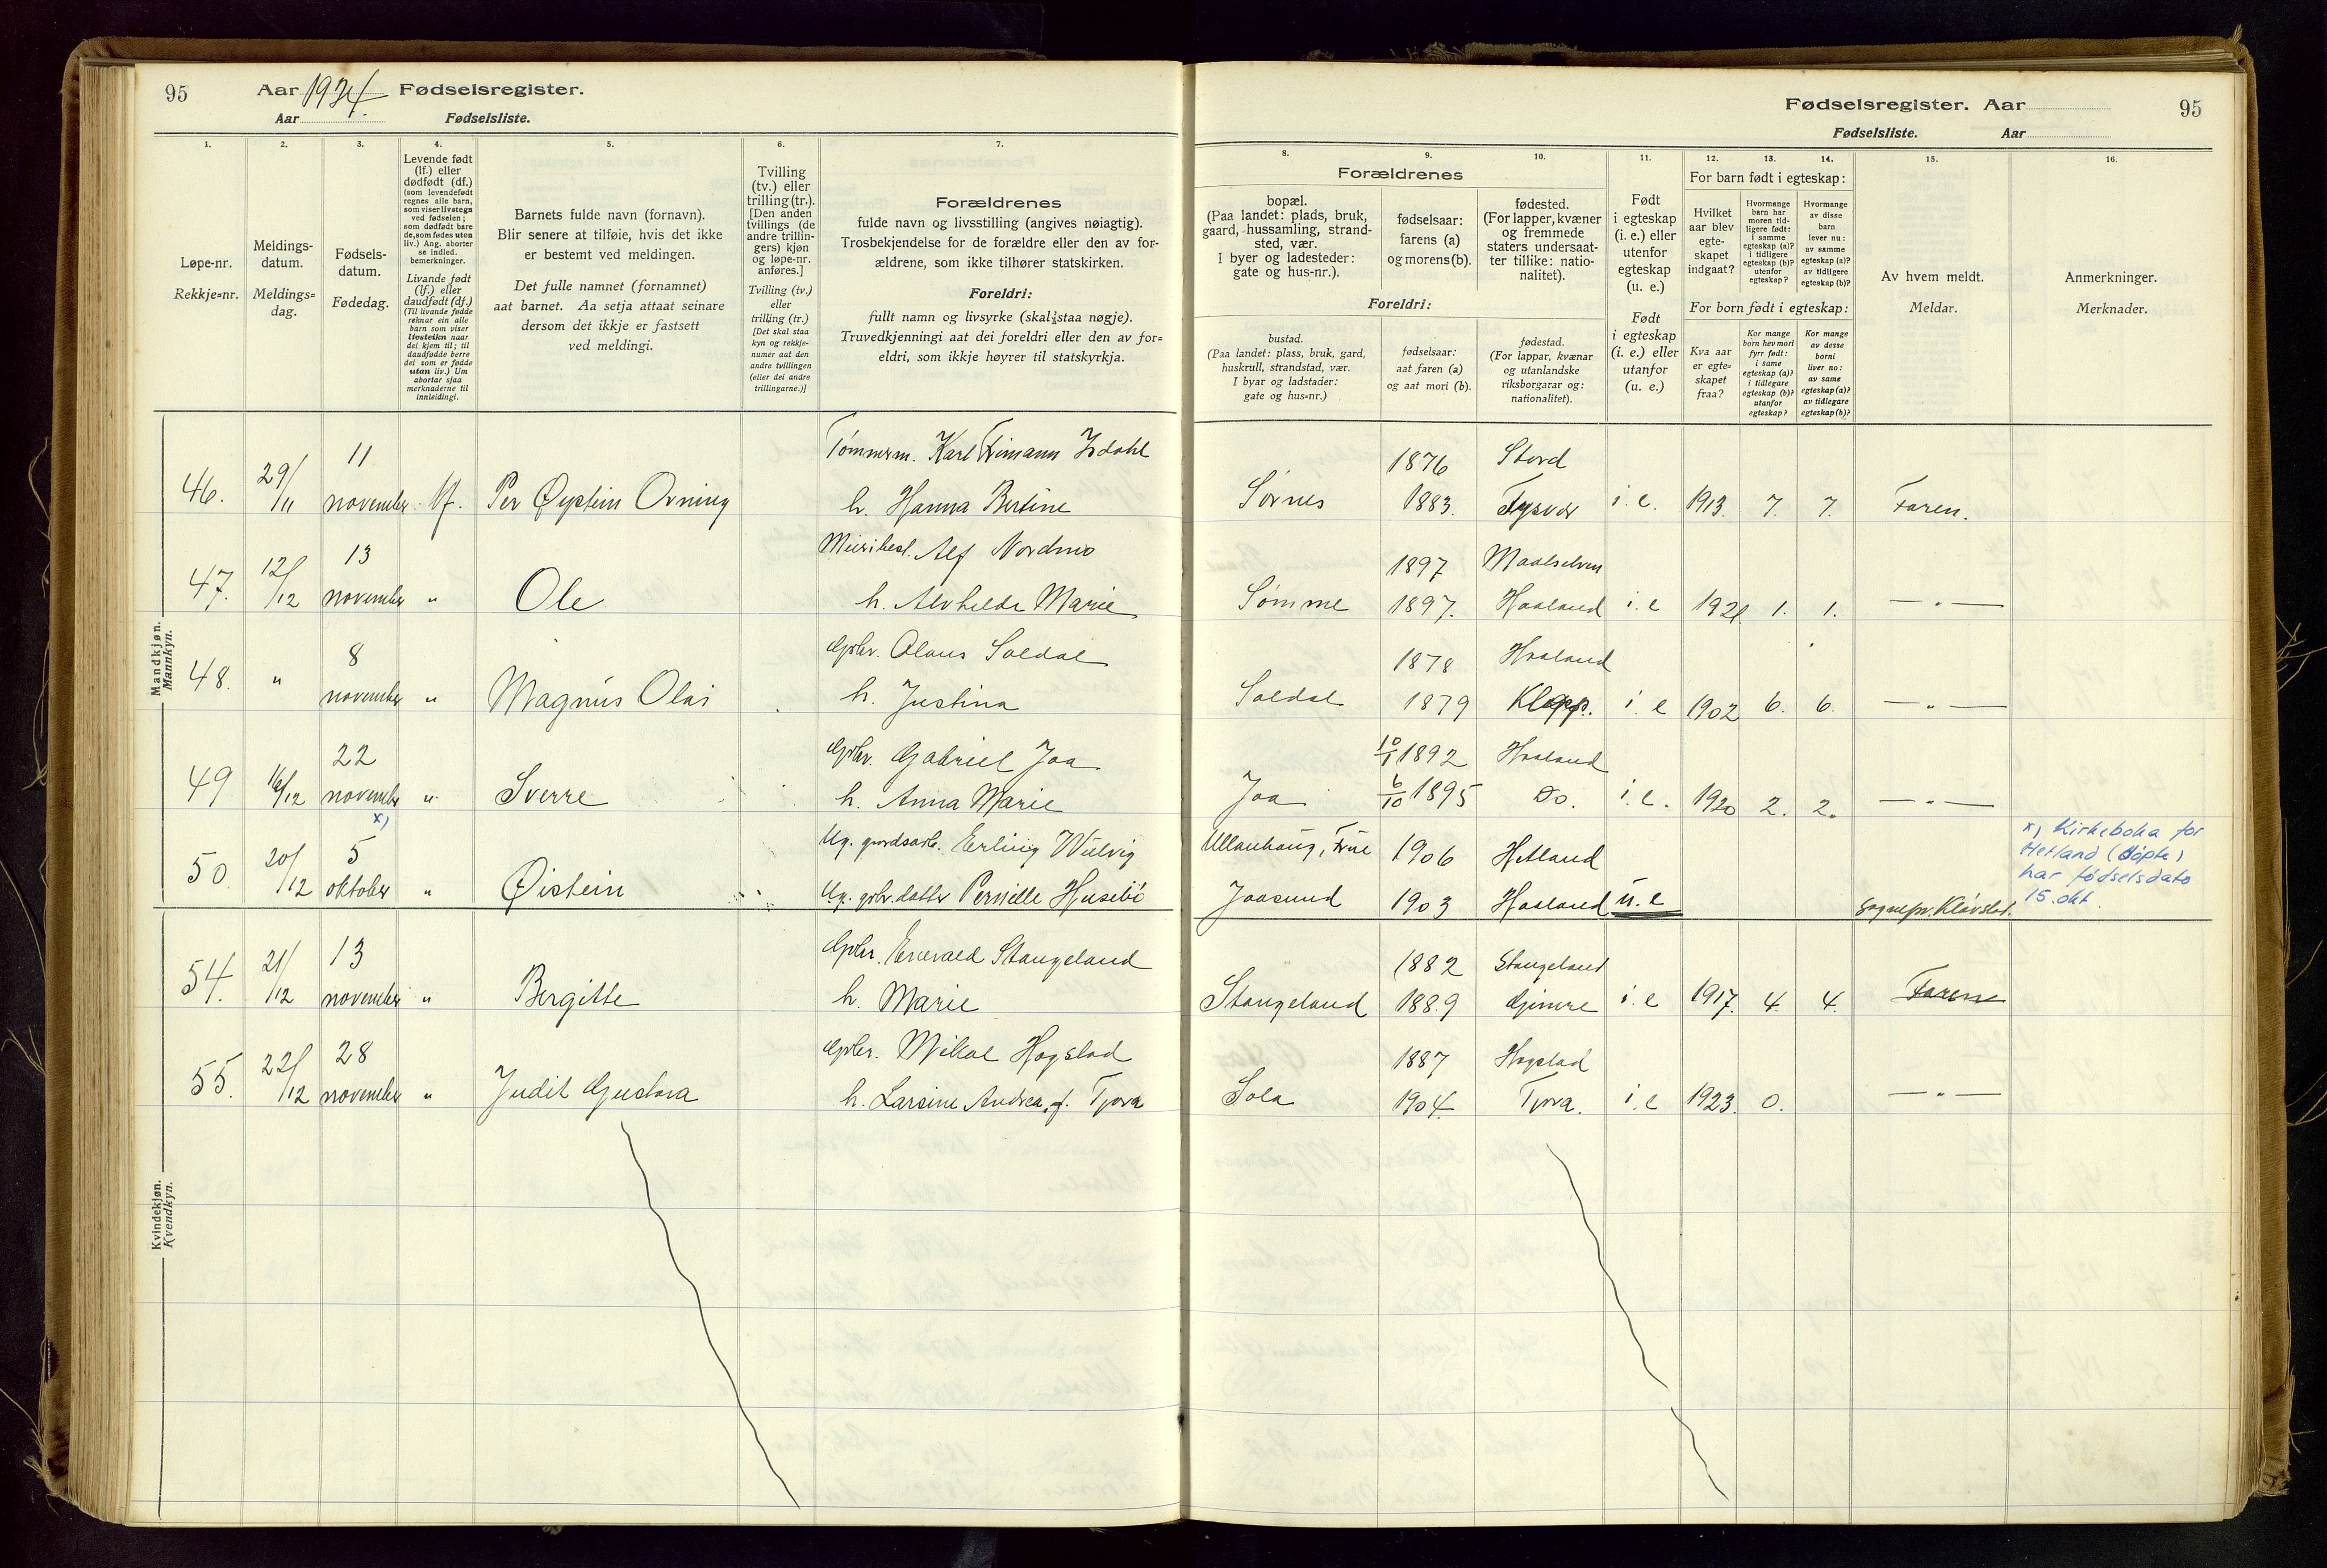 95
Aar 1924. Fødselsregister.
Aar Fødselsliste.
1.
2.
3.
4.
5.
6.
7.
Løpe-nr.
Rekkje=nr.
Meldings-
datum.
Meldings=
dag.
Fødsels-
datum.
Fødedag.
Levende født
(lf.) eller
dødfødt (df.)
(som levendefødt
regnes alle barn,
som viser livstegn
ved fødselen;
som dødfødt bare
de, som fødes uten
liv.) Ang. aborter
se indled.
bemerkninger.
Livande født
(lf.) eller
daudfødt (df.)
(Til livande fødde
reknar ein alle
barn som viser
livsteikn naar
dei kjem til; til
daudfødde berre
dei som er fødde
utan liv.) Um
abortar sjaa
merknaderne til
innleidingi.
Barnets fulde navn (fornavn).
Blir senere at tilføie, hvis det ikke
er bestemt ved meldingen.
Det fulle namnet (fornamnet)
aat barnet. Aa setja attaat seinare
dersom det ikkje er fastsett
ved meldingi.
Tvilling
(tv.) eller
trilling (tr.).
[Den anden
tvillings (de
andre trillin-
gers) kjøn
og løpe-nr.
anføres.]
Tvilling (tv.)
eller
trilling (tr.)
[Det skal staa
kyn og rekkje-
numer aat den
andre tvillingen
(eller dei andre
trillingarne.)]
Forældrenes
fulde navn og livsstilling (angives nøiagtig).
Trosbekjendelse for de forældre eller den av for-
ældrene, som ikke tilhører statskirken.
Foreldri:
fullt namn og livsyrke (skal staa nøgje).
Truvedkjenningi aat dei foreldri eller den av for=
eldri, som ikkje høyrer til statskyrkja.
Mandkjøn.
Mannkyn.
46. 29/11 11 november lf. Per Øystein Orning Tømmerm. Karl Frimann Isdahl
h. Hanna Bertine
47. 12/12 13 november " Ole Meieribest. Alf Nordmo
h. Alvhilde Marie
48. " 8 november " Magnus Olai Gbr. Olaus Soldal
h. Justina
49 16/12 22 november " Sverre Gbr. Gabriel Joa
h. Anna Marie
50. 20/12 x) 5 oktober " Øistein Ug. gardsarb. Erling Wulvig
Ug. gbr.datter Pernille Husebø
Kvindekjøn.
Kvendkyn.
54. 21/12 13 november " Bergitte Gbr. Enevald Stangeland
h. Marie
55. 22/12 28 november " Judit Gustava Gbr. Mikal Hogstad
h. Larsine Andrea, f. Tjora
Fødselsregister. Aar 95
Fødselsliste. Aar
8.
9.
10.
11.
12.
13.
14.
15.
16.
Forældrenes
bopæl.
(Paa landet: plads, bruk,
gaard, hussamling, strand-
sted, vær.
I byer og ladesteder:
gate og hus-nr.).
fødselsaar:
farens (a)
og morens (b).
fødested.
(For lapper, kvæner
og fremmede
staters undersaat-
ter tillike: natio-
nalitet).
Foreldri:
bustad.
(Paa landet: plass, bruk, gard,
huskrull, strandstad, vær.
I byar og ladstader:
gate og hus=nr.)
fødselsaar:
aat faren (a)
og aat mori (b).
fødestad.
(For lappar, kvænar
og utanlandske
riksborgarar og:
nationalitet).
Født
i egteskap
(i. e.) eller
utenfor
egteskap
(u. e.)
Født
i egteskap
(i. e.) eller
utanfor
(u. e.)
For barn født i egteskap:
Hvilket
aar blev
egte-
skapet
indgaat?
Hvormange
barn har
moren tid-
ligere født:
i samme
egteskap (a)?
i tidligere
egteskap (b)?
utenfor
egteskap?
Hvormange
av disse
barn
lever nu:
av samme
egteskap (a)?
av tidligere
egteskap (b)?
For born født i egteskap:
Kva aar
er egte=
skapet
fraa?
Kor mange
born hev mori
fyrr født:
i same
egteskap (a)?
i tidlegare
egteskap (b)?
utanfor
egteskap?
Kor mange
av desse
borni
liver no:
av same
egteskap (a)?
av tidlegare
egteskap (b)?
Av hvem meldt.
Meldar.
Anmerkninger.
Merknader.
1876 Stord
Sørnes 1883. Tysvær i. e. 1913. 7. 7. Faren.
1897 Maalselven
Sømme 1897. Haaland i. e 1921. 1. 1. — " —
1878 Haaland
Soldal 1879 Klepp. i. e 1902 6. 6. — " —
10/1 1892 Haaland
Joa 6/10 1895 Do. i. e. 1920 2. 2. — " —
Ullanhaug, 1906 Hetland
Jaasund 1903 Haaland u. e Sognepr. Kløvstad.
x) Kirkeboka for
Hetland (døpte)
har fødselsdato
15. okt.
1882 Stangeland
Stangeland 1889 Gimre i. e 1917. 4. 4. Faren
1887 Hogstad
Sola 1904. Tjora. i. e 1923. 0. — " —